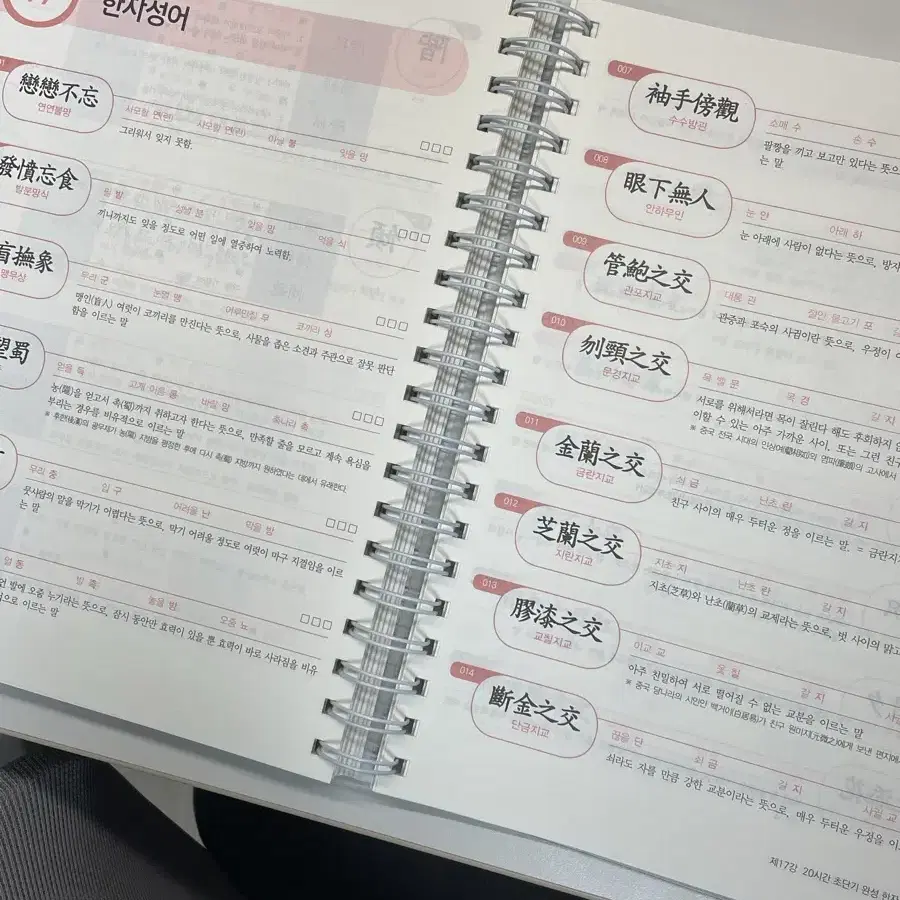 한자성어
戀戀不忘
연연불망
사모할 연(련) 사모할 연(련) 아닐 불 잊을 망
그리워서 잊지 못함.
發憤忘食
발분망식
필 발 성낼 분 잊을 망 먹을 식
끼니까지도 잊을 정도로 어떤 일에 열중하여 노력함.
盲撫象
맹무상
무리 군 눈멀 맹 어루만질 무 코끼리 상
맹인(盲人) 여럿이 코끼리를 만진다는 뜻으로, 사물을 좁은 소견과 주관으로 잘못 판단
함을 이르는 말
望蜀
얻을 득 고개 이름 롱 바랄 망 촉나라 촉
농(隴)을 얻고서 촉(蜀)까지 취하고자 한다는 뜻으로, 만족할 줄을 모르고 계속 욕심을
부리는 경우를 비유적으로 이르는 말
※ 후한(後漢)의 광무제가 농(隴) 지방을 평정한 후에 다시 촉(蜀) 지방까지 원하였다는 데에서 유래한다.
무리 중 입 구 어려울 난 막을 방
뭇사람의 말을 막기가 어렵다는 뜻으로, 막기 어려울 정도로 여럿이 마구 지껄임을 이르
는 말
얼 동 발 족 놓을 방 오줌 뇨
언 발에 오줌 누기라는 뜻으로, 잠시 동안만 효력이 있을 뿐 효력이 바로 사라짐을 비유
적으로 이르는 말
007
袖手傍觀
수수방관
소매 수 손 수
팔짱을 끼고 보고만 있다는 뜻으
는 말
008
眼下無人
안하무인
눈 안 아래 하
눈 아래에 사람이 없다는 뜻으로, 방자
009
管鮑之交
관포지교
대롱 관 절인 물고기 포
관중과 포숙의 사귐이란 뜻으로, 우정이 아
010
刎頸之交
문경지교
목 벨 문 목 경 갈 지
서로를 위해서라면 목이 잘린다 해도 후회하지 않
이할 수 있는 아주 가까운 사이, 또는 그런 친구
※ 중국 전국 시대의 인상여(藺相如)와 염파(廉頗)의 고사에서
011
金蘭之交
금란지교
쇠 금 난초 란 갈 지
친구 사이의 매우 두터운 정을 이르는 말. = 금란지
012
芝蘭之交
지란지교
지초 지 난초 란 갈 지
지초(芝草)와 난초(蘭草)의 교제라는 뜻으로, 벗 사이의 맑고
013
膠漆之交
교칠지교
아교 교 옻 칠 갈 지
아주 친밀하여 서로 떨어질 수 없는 교분을 이르는 말
※ 중국 당나라의 시인인 백거이(白居易)가 친구 원미지(元微之)에게 보낸 편지에
014
斷金之交
단금지교
끊을 단 쇠 금 갈 지 사귈 교
쇠라도 자를 만큼 강한 교분이라는 뜻으로, 매우 두터운 우정을 이
제17강 20시간 초단기 완성 한자